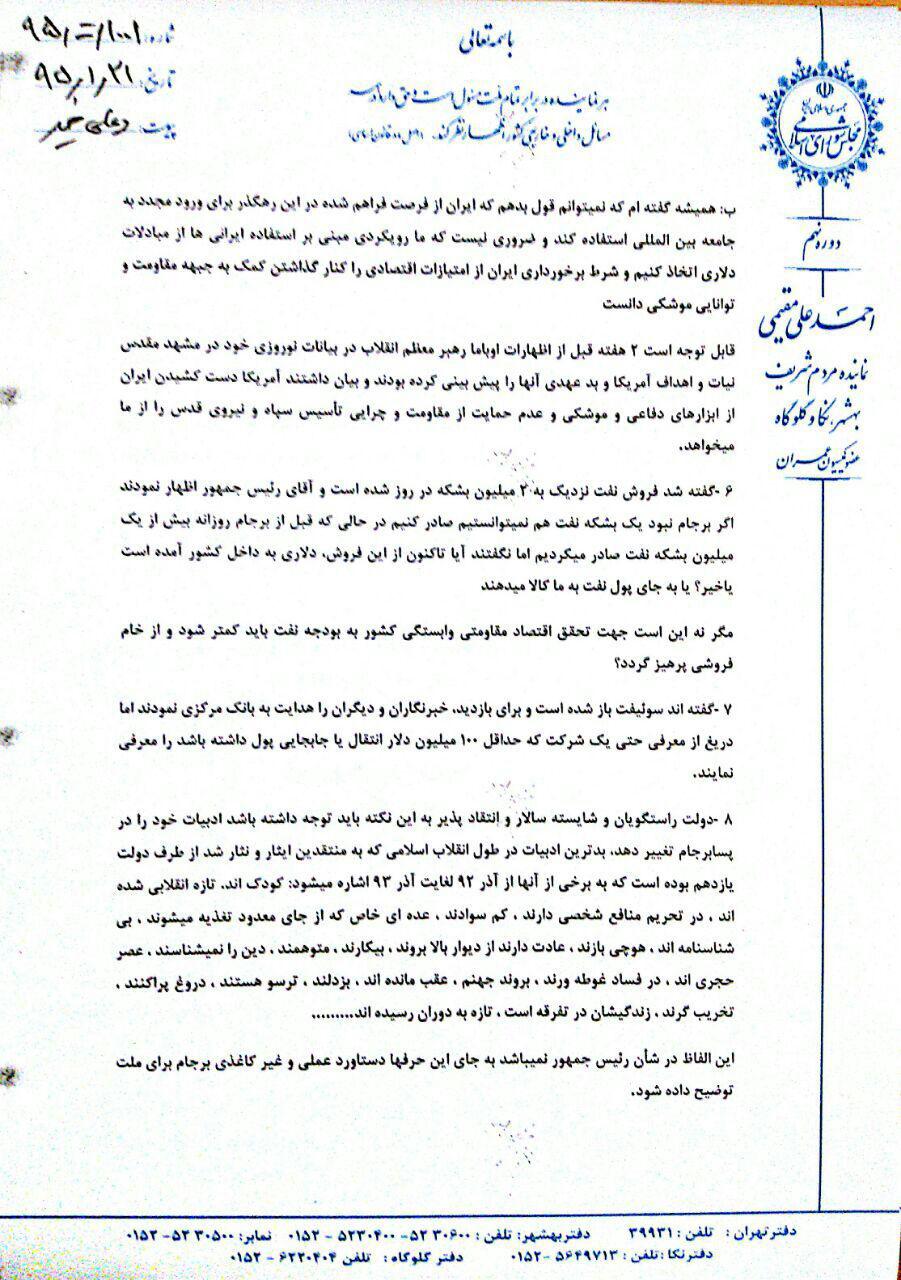 باسمه تعالی
شماره:
تاریخ: ۹۵٫۱٫۲۱
پیوست:
هر نماینده در برابر تمام ملت مسئول است و حق دارد در همه
مسائل داخلی و خارجی کشور اظهار نظر کند.
جمهوری اسلامی ایران
مجلس شورای اسلامی
دوره نهم
احمد علی مقیمی
نماینده مردم شریف
بهشهر، نکا و گلوگاه
عضو کمیسیون عمران
ب: همیشه گفته ام که نمیتوانم قول بدهم که ایران از فرصت فراهم شده در این رهگذر برای ورود مجدد به
جامعه بین المللی استفاده کند و ضروری نیست که ما رویکردی مبنی بر استفاده ایرانی ها از مبادلات
دلاری اتخاذ کنیم و شرط برخورداری ایران از امتیازات اقتصادی را کنار گذاشتن کمک به جبهه مقاومت و
توانایی موشکی دانست
قابل توجه است ۲ هفته قبل از اظهارات اوباما رهبر معظم انقلاب در بیانات نوروزی خود در مشهد مقدس
نیات و اهداف آمریکا و بد عهدی آنها را پیش بینی کرده بودند و بیان داشتند آمریکا دست کشیدن ایران
از ابزارهای دفاعی و موشکی و عدم حمایت از مقاومت و چرایی تأسیس سپاه و نیروی قدس را از ما
میخواهد.
۶ -گفته شد فروش نفت نزدیک به ۲ میلیون بشکه در روز شده است و آقای رئیس جمهور اظهار نمودند
اگر برجام نبود یک بشکه نفت هم نمیتوانستیم صادر کنیم در حالی که قبل از برجام روزانه بیش از یک
میلیون بشکه نفت صادر میکردیم اما نگفتند آیا تاکنون از این فروش، دلاری به داخل کشور آمده است
یاخیر؟ یا به جای پول نفت به ما کالا میدهند
مگر نه این است جهت تحقق اقتصاد مقاومتی وابستگی کشور به بودجه نفت باید کمتر شود و از خام
فروشی پرهیز گردد؟
۷ -گفته اند سوئیفت باز شده است و برای بازدید، خبرنگاران و دیگران را هدایت به بانک مرکزی نمودند اما
دریغ از معرفی حتی یک شرکت که حداقل ۱۰۰ میلیون دلار انتقال یا جابجایی پول داشته باشد را معرفی
نمایند.
۸ -دولت راستگویان و شایسته سالار و انتقاد پذیر به این نکته باید توجه داشته باشد ادبیات خود را در
پسابرجام تغییر دهد، بدترین ادبیات در طول انقلاب اسلامی که به منتقدین ایثار و نثار شد از طرف دولت
یازدهم بوده است که به برخی از آنها از آذر ۹۲ لغایت آذر ۹۳ اشاره میشود: کودک اند، تازه انقلابی شده
اند ، در تحریم منافع شخصی دارند ، کم سوادند ، عده ای خاص که از جای معدود تغذیه میشوند ، بی
شناسنامه اند ، هوچی بازند ، عادت دارند از دیوار بالا بروند ، بیکارند ، متوهمند ، دین را نمیشناسند ، عصر
حجری اند ، در فساد غوطه ورند ، بروند جهنم ، عقب مانده اند ، بزدلند ، ترسو هستند ، دروغ پراکنند ،
تخریب گرند ، زندگیشان در تفرقه است ، تازه به دوران رسیده اند.........
این الفاظ در شأن رئیس جمهور نمیباشد به جای این حرفها دستاورد عملی و غیر کاغذی برجام برای ملت
توضیح داده شود.
دفتر تهران : تلفن : ۳۹۹۳۱ دفتر بهشهر: تلفن : ۵۲۳۰۶۰۰ - ۵۲۳۰۴۰۰ - ۰۱۵۲ نمابر: ۵۲۳۰۵۰۰ - ۰۱۵۲
دفتر نکا : تلفن : ۵۶۴۹۷۱۳ - ۰۱۵۲ دفتر گلوگاه : تلفن ۶۲۲۰۴۰۴ - ۰۱۵۲